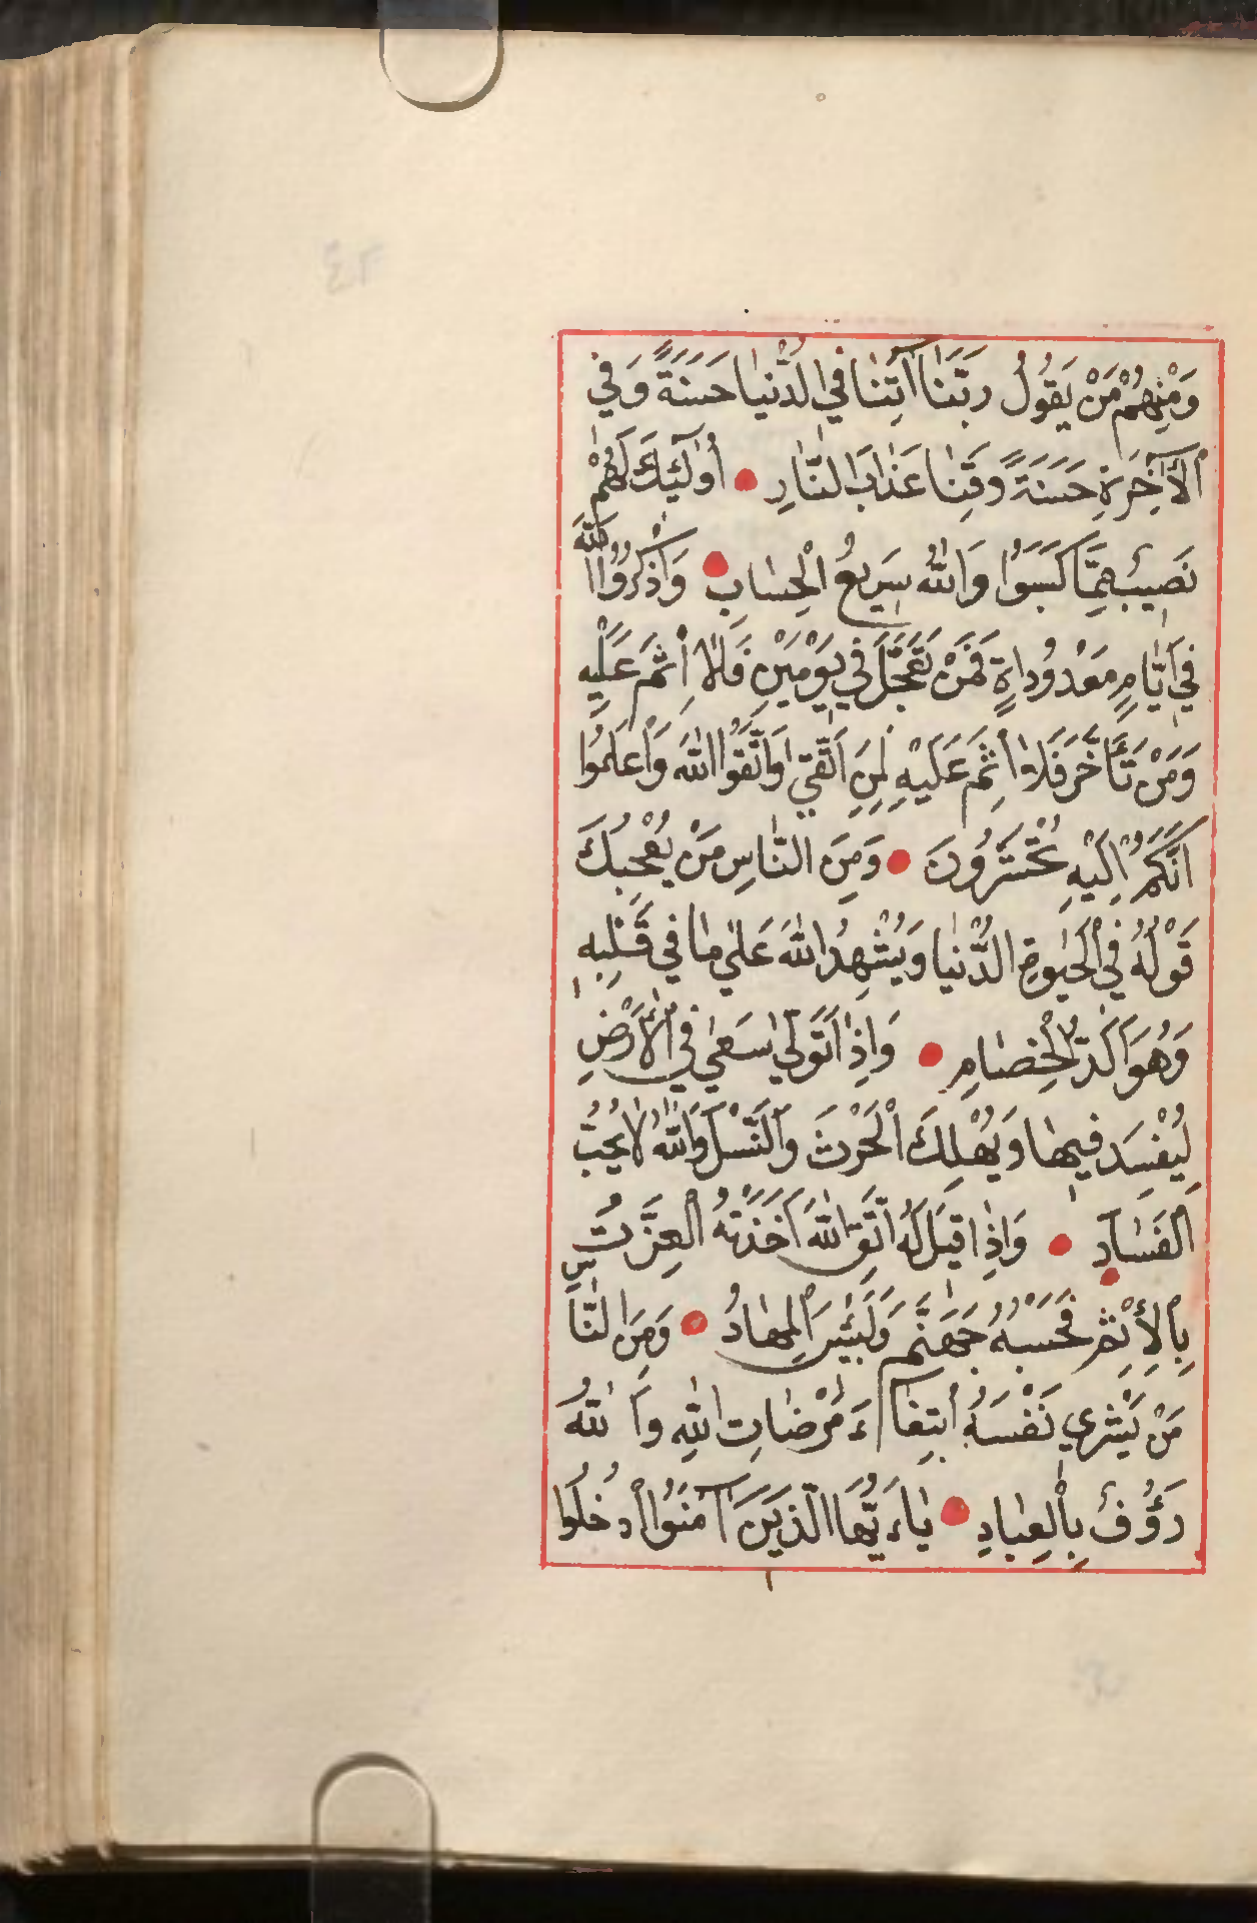 وَمِنْهُمْ مَنْ يَقُولُ رَبَّنَا اٰتِنٰا فِي الدُّنْيٰا حَسَنَةً وَفِي
اْلآخِرَةِ حَسَنَةً وَقِنٰا عَذٰابَ النّٰارِ ● أُولٰئِكَ لَهُمْ
نَصِيبٌ مِمَّا كَسَبُوا وَاللّٰهُ سَرِيعُ الْحِسٰابِ ● وَاذْكُرُوا اللّٰهَ
فِي أَيّٰامٍ مَعْدُودٰاةٍ فَمَنْ تَعَجَّلَ فِي يَوْمَيْنِ فَلاٰ إِثْمَ عَلَيْهِ
وَمَنْ تَأَخَّرَ فَلاٰ إِثْمَ عَلَيْهِ لِمَنِ اتَّقىٰ وَاتَّقُوا اللّٰهَ وَاعْلَمُوا
اَنَّكُمْ اِلَيْهِ تُحْشَرُونَ ● وَمِنَ النّٰاسِ مَنْ يُعْجِبُكَ
قَوْلُهُ فِي الْحَيٰوةِ الدُّنْيٰا وَيُشْهِدُ اللّٰهَ عَلٰي مٰا فِي قَلْبِهِ
وَهُوَ اَلَدُّ الْخِصٰامِ ● وَاِذٰا تَوَلّٰي سَعٰي فِي الْأَرْضِ
لِيُفْسِدَ فِيهٰا وَيُهْلِكَ الْحَرْثَ وَالنَّسْلَ وَاللّٰهُ لاٰ يُحِبُّ
الْفَسٰادَ ● وَاِذٰا قِيلَ لَهُ اتَّقِ اللّٰهَ اَخَذَتْهُ الْعِزَّتُ
بِالْإِثْمِ فَحَسْبُهُ جَهَنَّمُ وَلَبِئْسَ الْمِهٰادُ ● وَمِنَ النّٰاسِ
مَنْ يَشْرِي نَفْسَهُ ابْتِغٰاءَ مَرْضٰاتِ اللّٰهِ وَاللّٰهُ
رَؤُفٌ بِالْعِبٰادِ ● يٰاءَيُّهَا الَّذِينَ اٰمَنُوا ادْخُلُوا